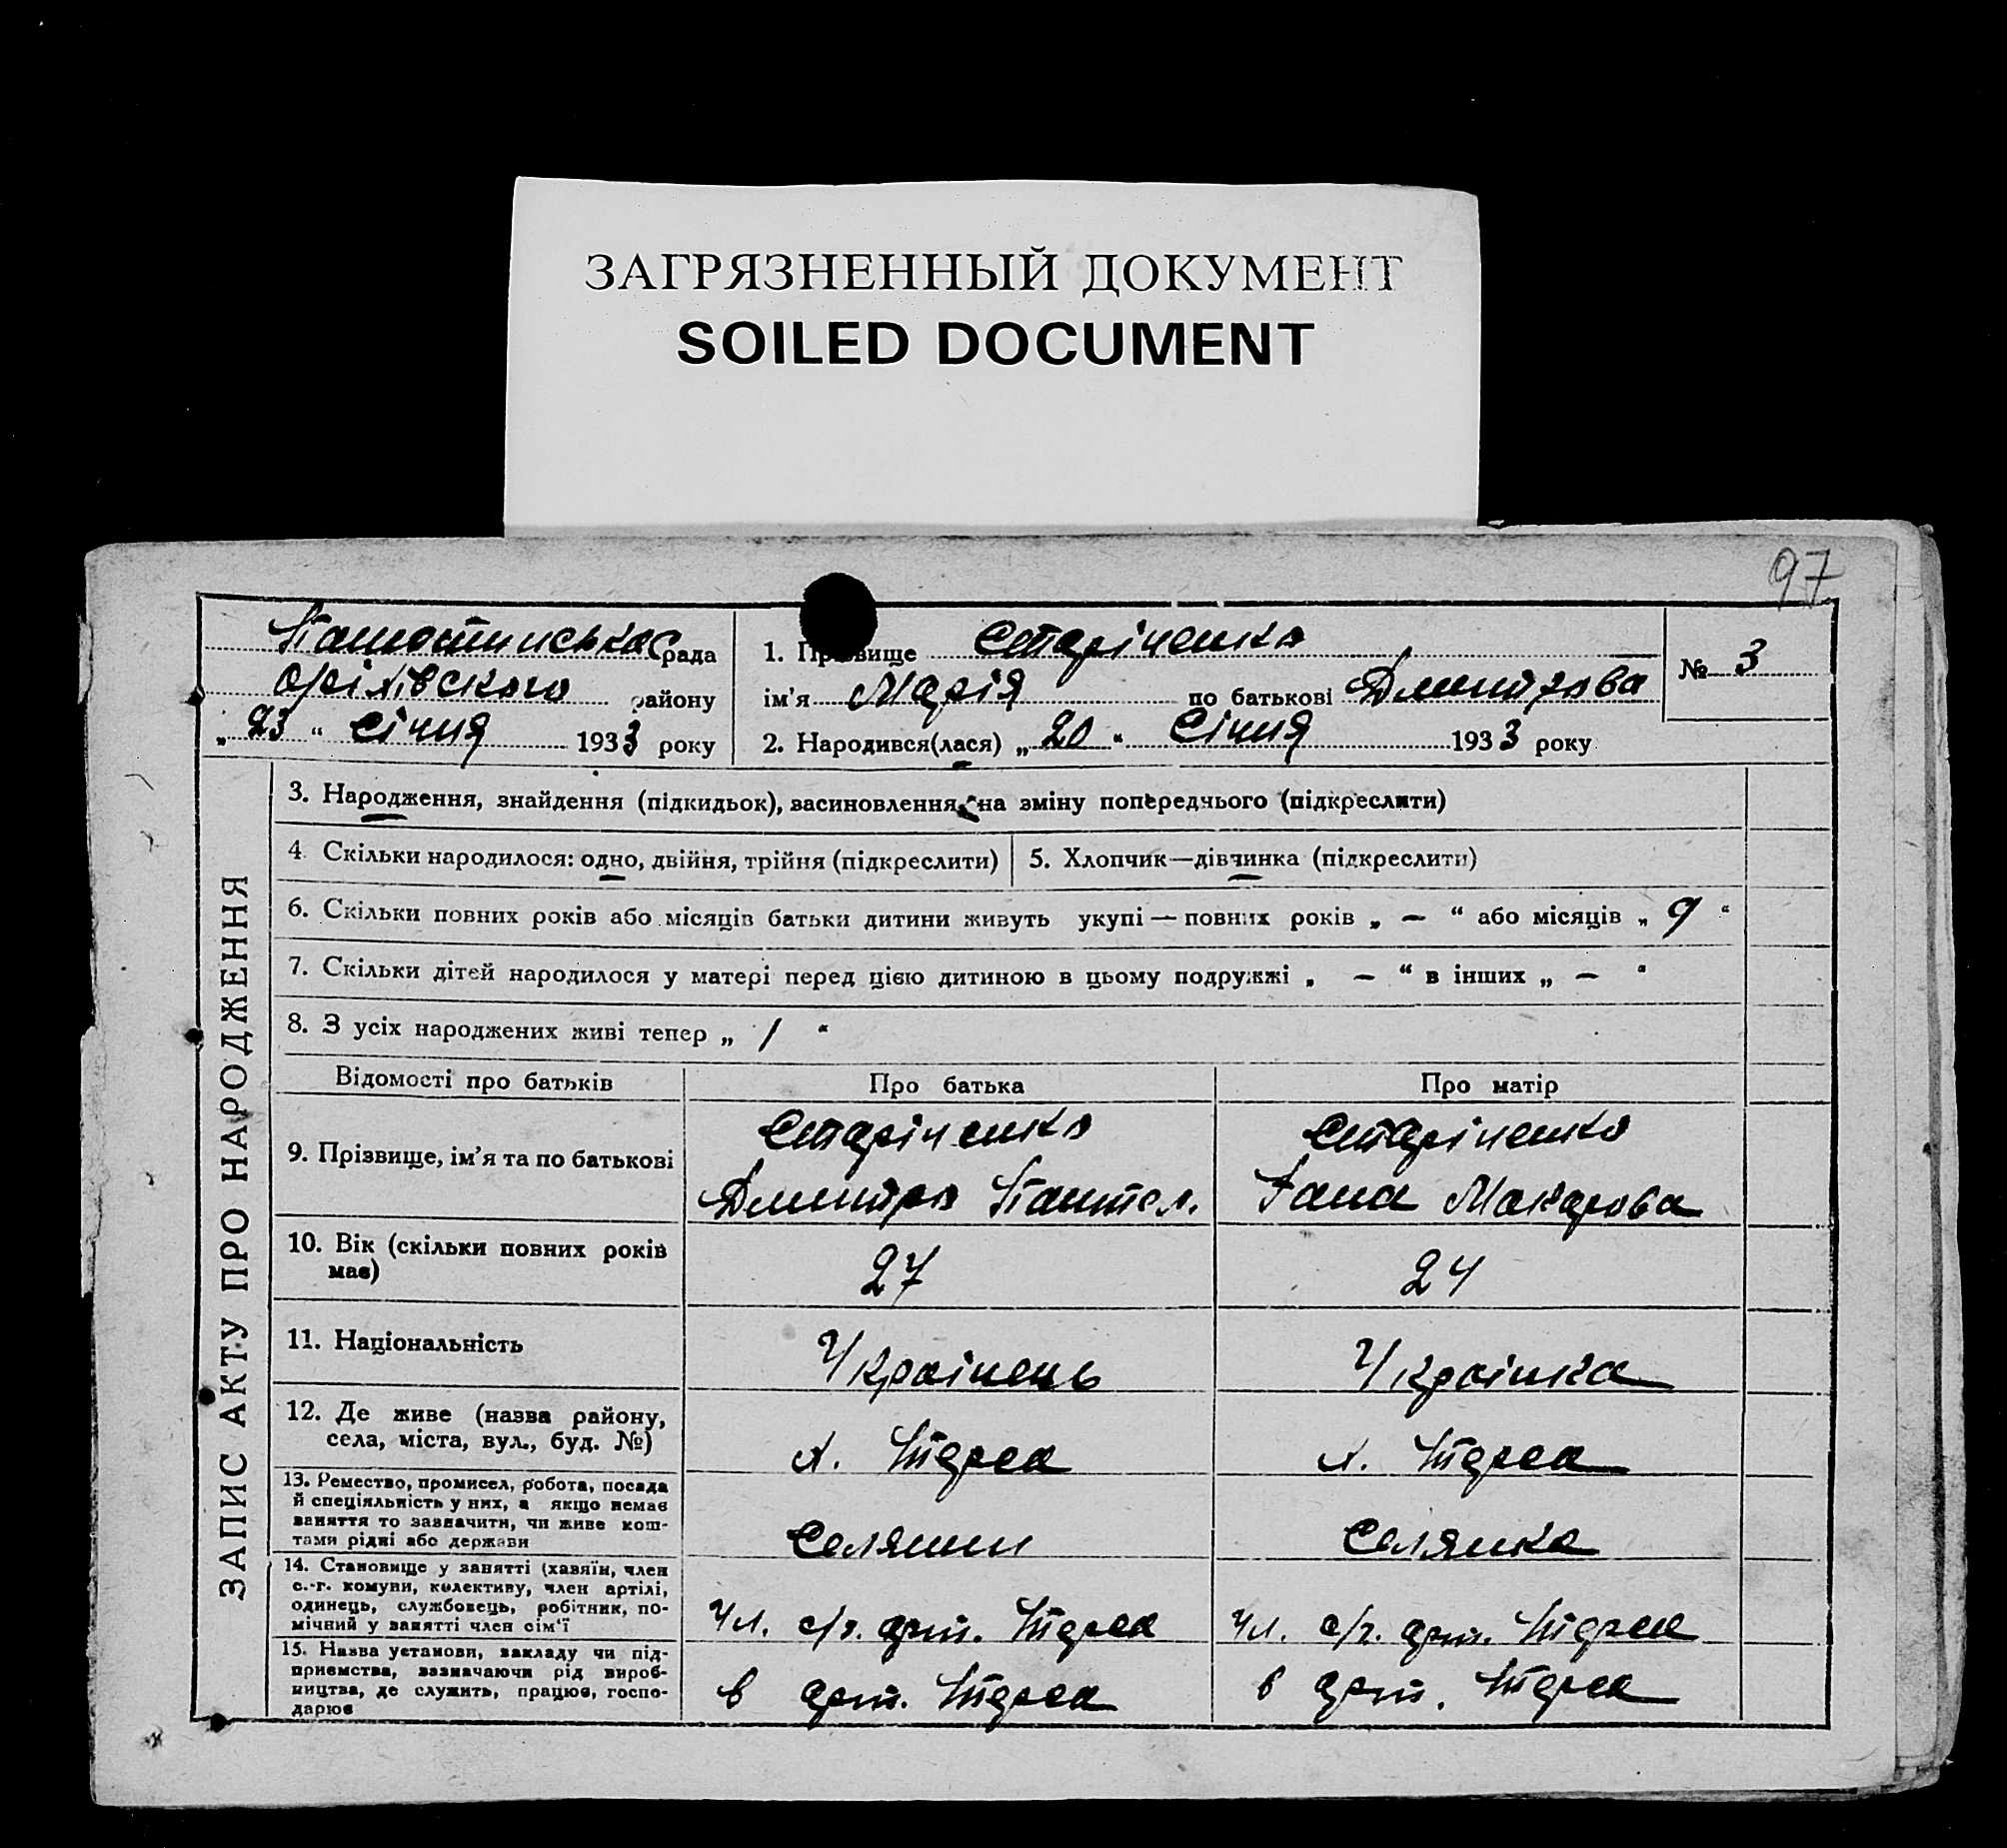 ЗАГРЯЗНЕННЫЙ ДОКУМЕНТ
SOILED DOCUMENT
97
рада
Оріхівського району
„ 23 “ Січня 1933 року
1. Прізвище Старіченко
ім'я Марія по батькові Дмитрова
№ 3
2. Народився(лася) „ 20 “ Січня 1933 року
ЗАПИС АКТУ ПРО НАРОДЖЕННЯ
3. Народження, знайдення (підкидьок), засиновлення, на зміну попереднього (підкреслити)
4 Скільки народилося: одно, двійня, трійня (підкреслити)
5. Хлопчик—дівчинка (підкреслити)
6. Скільки повних років або місяців батьки дитини живуть укупі — повних років „ — “ або місяців „ 9 “
7. Скільки дітей народилося у матері перед цією дитиною в цьому подружжі „ — “ в інших „ — “
8. З усіх народжених живі тепер „ 1 “
Відомості про батьків
Про батька
Про матір
9. Прізвище, ім'я та по батькові
Старіченко
Дмитро Пантел.
Старіченко
Ганна Макарова
10. Вік (скільки повних років
має)
27
24
11. Національність
Українець
Українка
12. Де живе (назва району,
села, міста, вул., буд. №)
х.
х.
13. Ремество, промисел, робота, посада
й спеціяльність у них, а якщо немає
заняття то зазначити, чи живе кош-
тами рідні або держави
Селянин
Селянка
14. Становище у занятті (хазяїн, член
с.-г. комуни, колективу, член артілі,
одинець, службовець, робітник, по-
мічний у занятті член сім'ї
Чл. с/г. арт.
Чл. с/г. арт.
15. Назва установи, закладу чи під-
приємства, зазначаючи рід вироб-
ництва, де служить, працює, госпо-
дарює
в арт.
в арт.